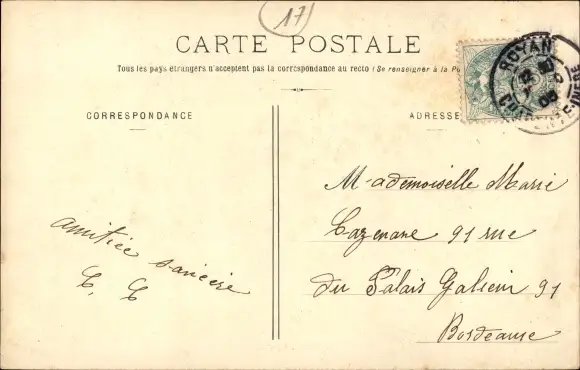 17
CARTE POSTALE
Tous les pays étrangers n'acceptent pas la correspondance au recto (Se renseigner à la Po
CORRESPONDANCE
ADRESSE
ROYAN
Mademoiselle Marie
Cazenave 91 rue
du Palais Galien 91
Bordeause
amitiée sancère
C. C